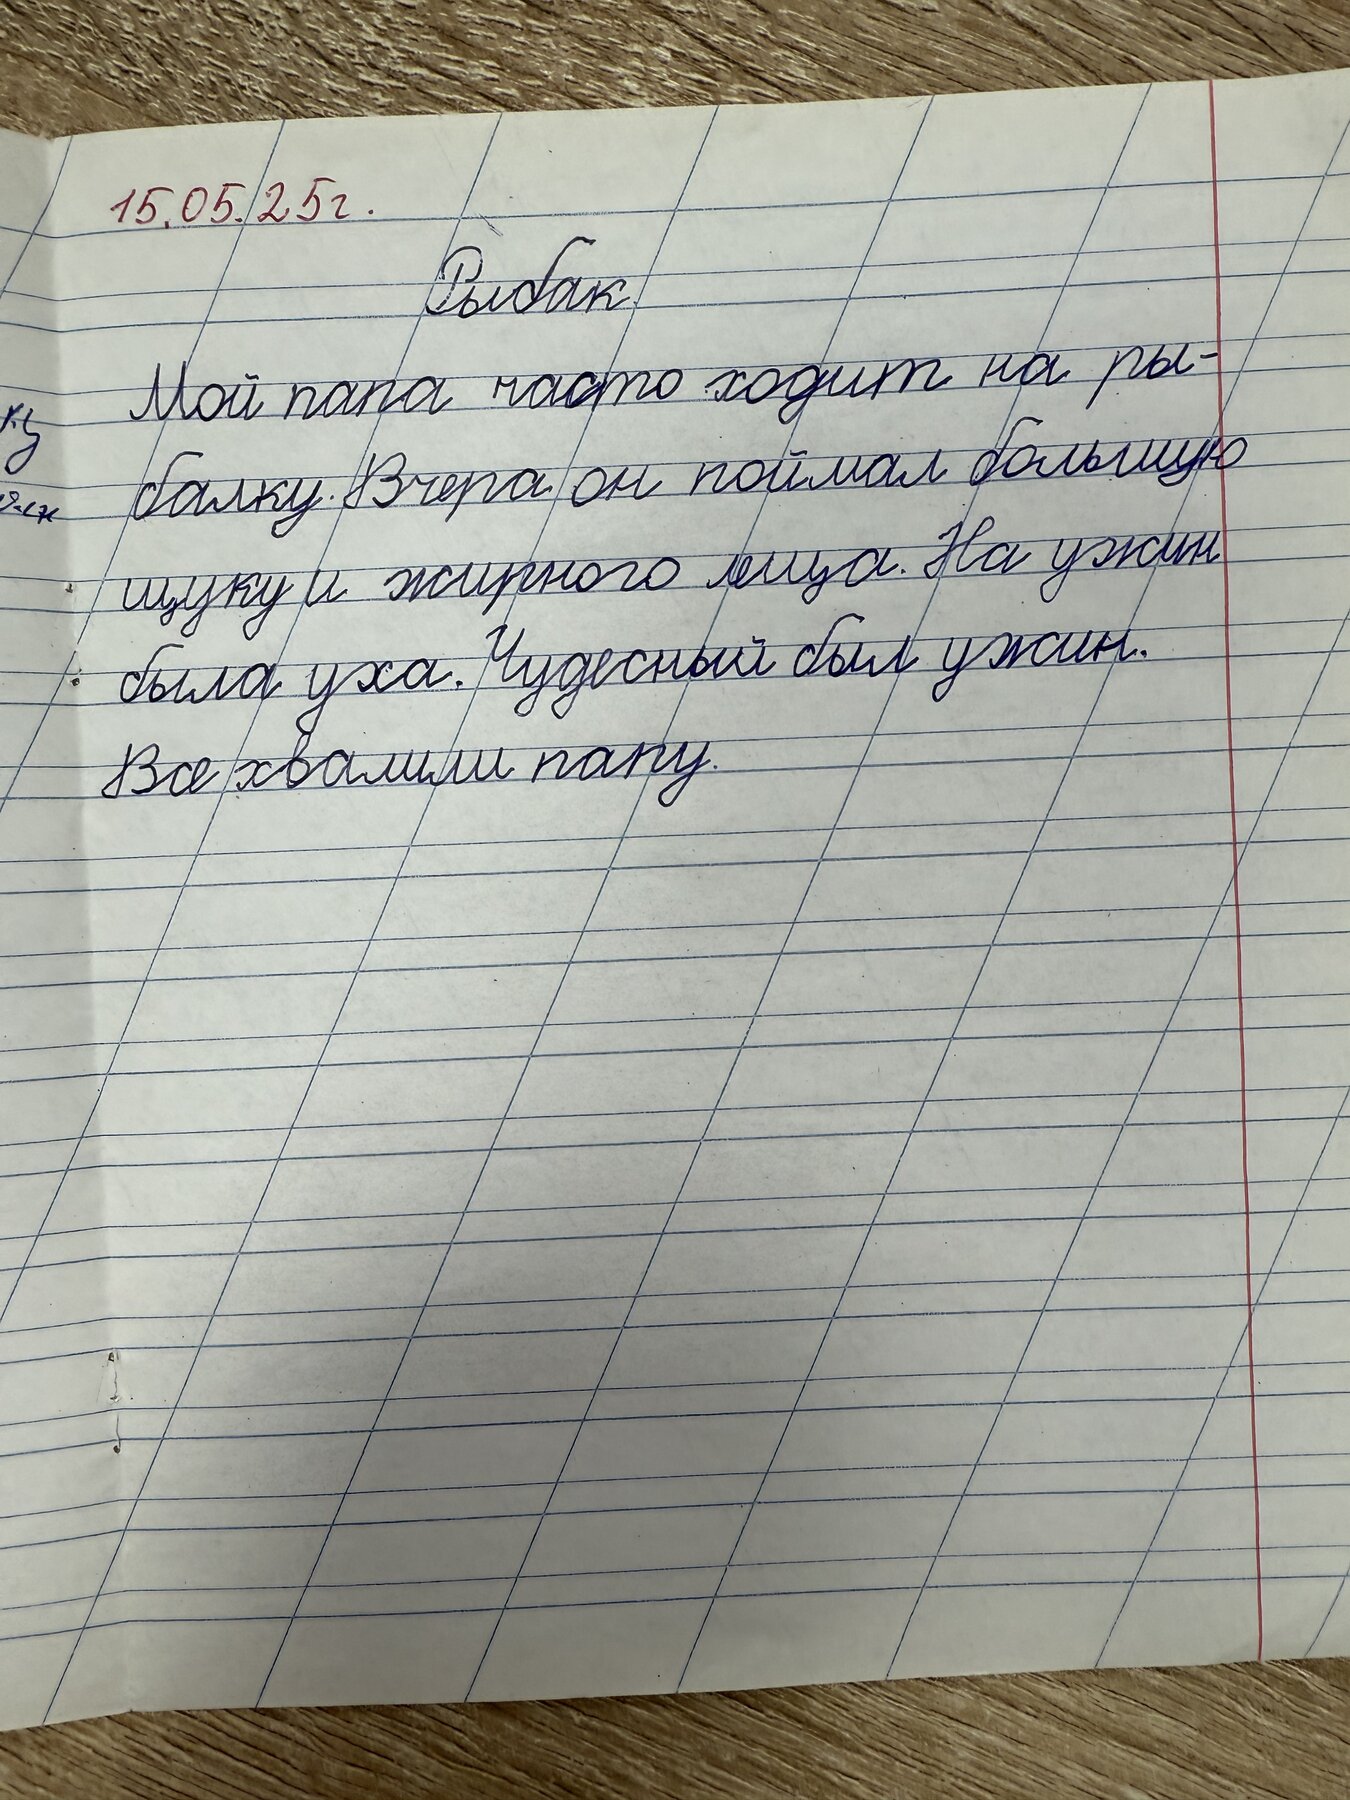 15.05.25г.
Рыбак.
Мой папа часто ходит на ры-
балку. Вчера он поймал большую
щуку и жирного леща. На ужин
была уха. Чудесный был ужин.
Все хвалили папу.